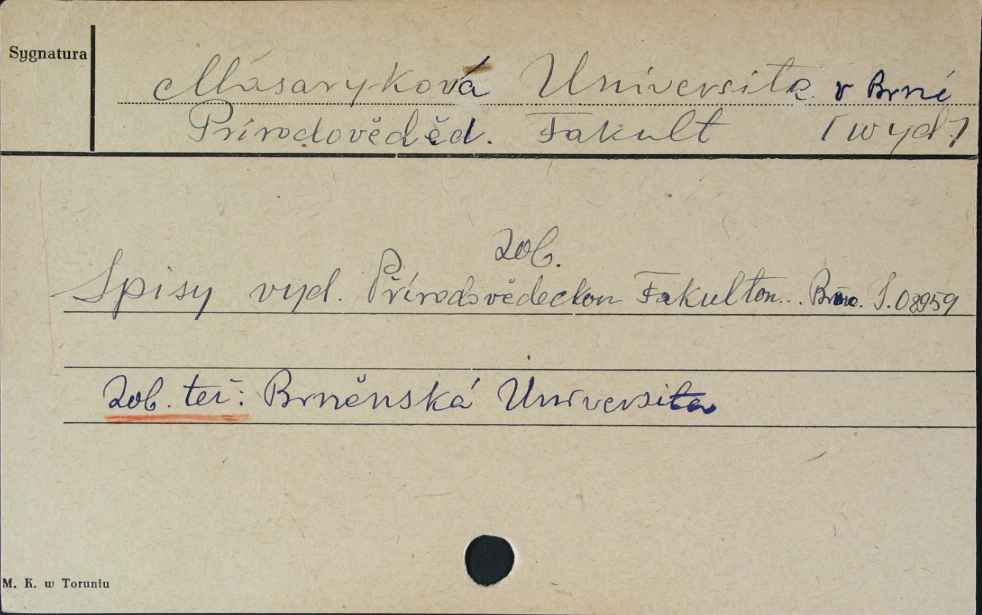 Sygnatura
Masaryková Universita v Brně
Přírodověděd. Fakult [wyd.]
zob.
Spisy vyd. Přírodovědeckou Fakultou... Brno. S.08959
zob. też: Brněnská Universita
M. K. w Toruniu